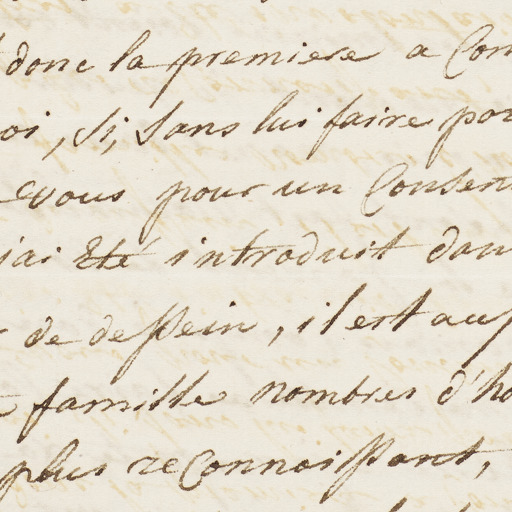 donc la premiere a Com
oi, si, sans lui faire por
vous pour un Consent
j'ai eté introduit dan
de dessein, il est aus
famille nombres d'ho
plus reconnoissant,